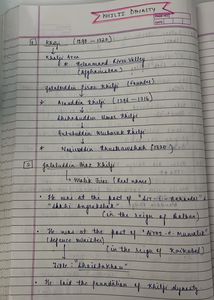 KHILJI DYNASTY
① Khilji (1290 - 1320)
Khilji Area
* Helemand River Valley
(Afghanistan)
Jalaluddin Firoz Khilji (founder)
* Alauddin Khilji (1296 - 1316)
* Shihabuddin Umar Khilji
Qutubuddin Mubarak Khilji
* Nasiruddin Khushraushah (1320)
② Jalaluddin Firoz Khilji
Malik Firoz (Real name)
• He was at the post of "Sir-i-Jandar"
"Shahi Angrakshak"
(in the reign of Balban)
• He was at the post of "Ariz-e-Mumalik"
(defence minister)
(in the reign of Kaikubad)
Title - "Shaistakhan"
• He laid the foundation of Khilji dynasty